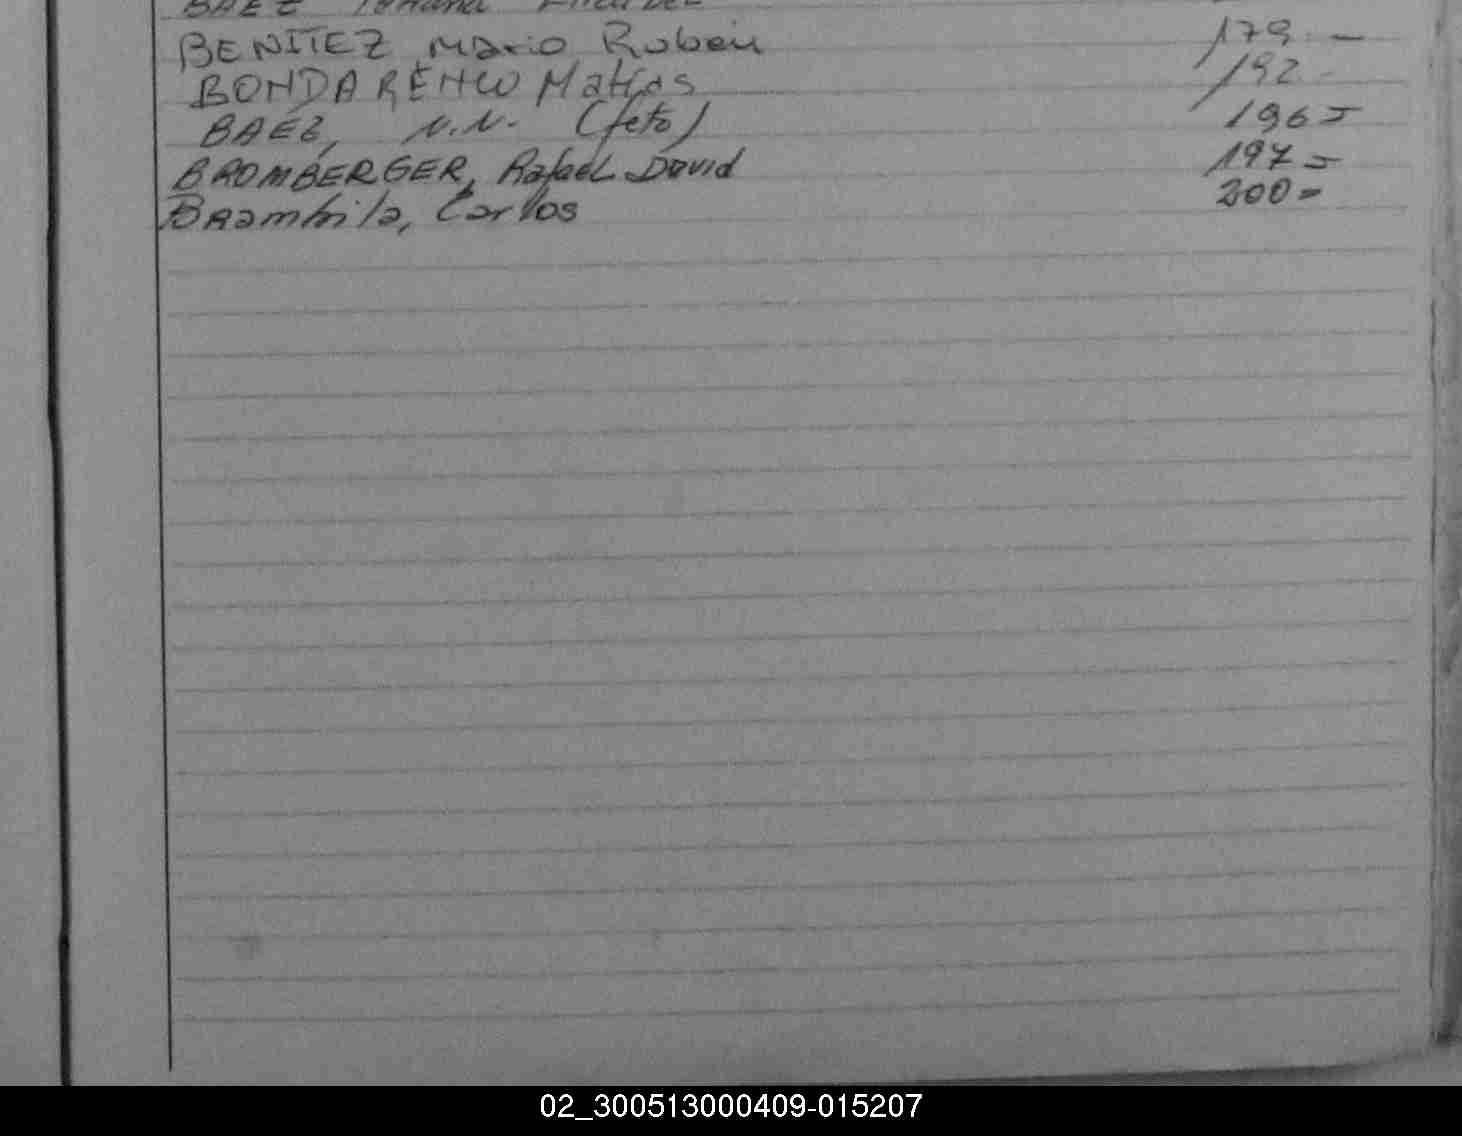 BAEZ
BENITEZ Mario Ruben 179. —
BONDARENCO Matias 192 -
BAEZ, N.N. (feto) 196 =
BROMBERGER, Rafael David 197 =
Brambila, Carlos 200 =
02_300513000409-015207